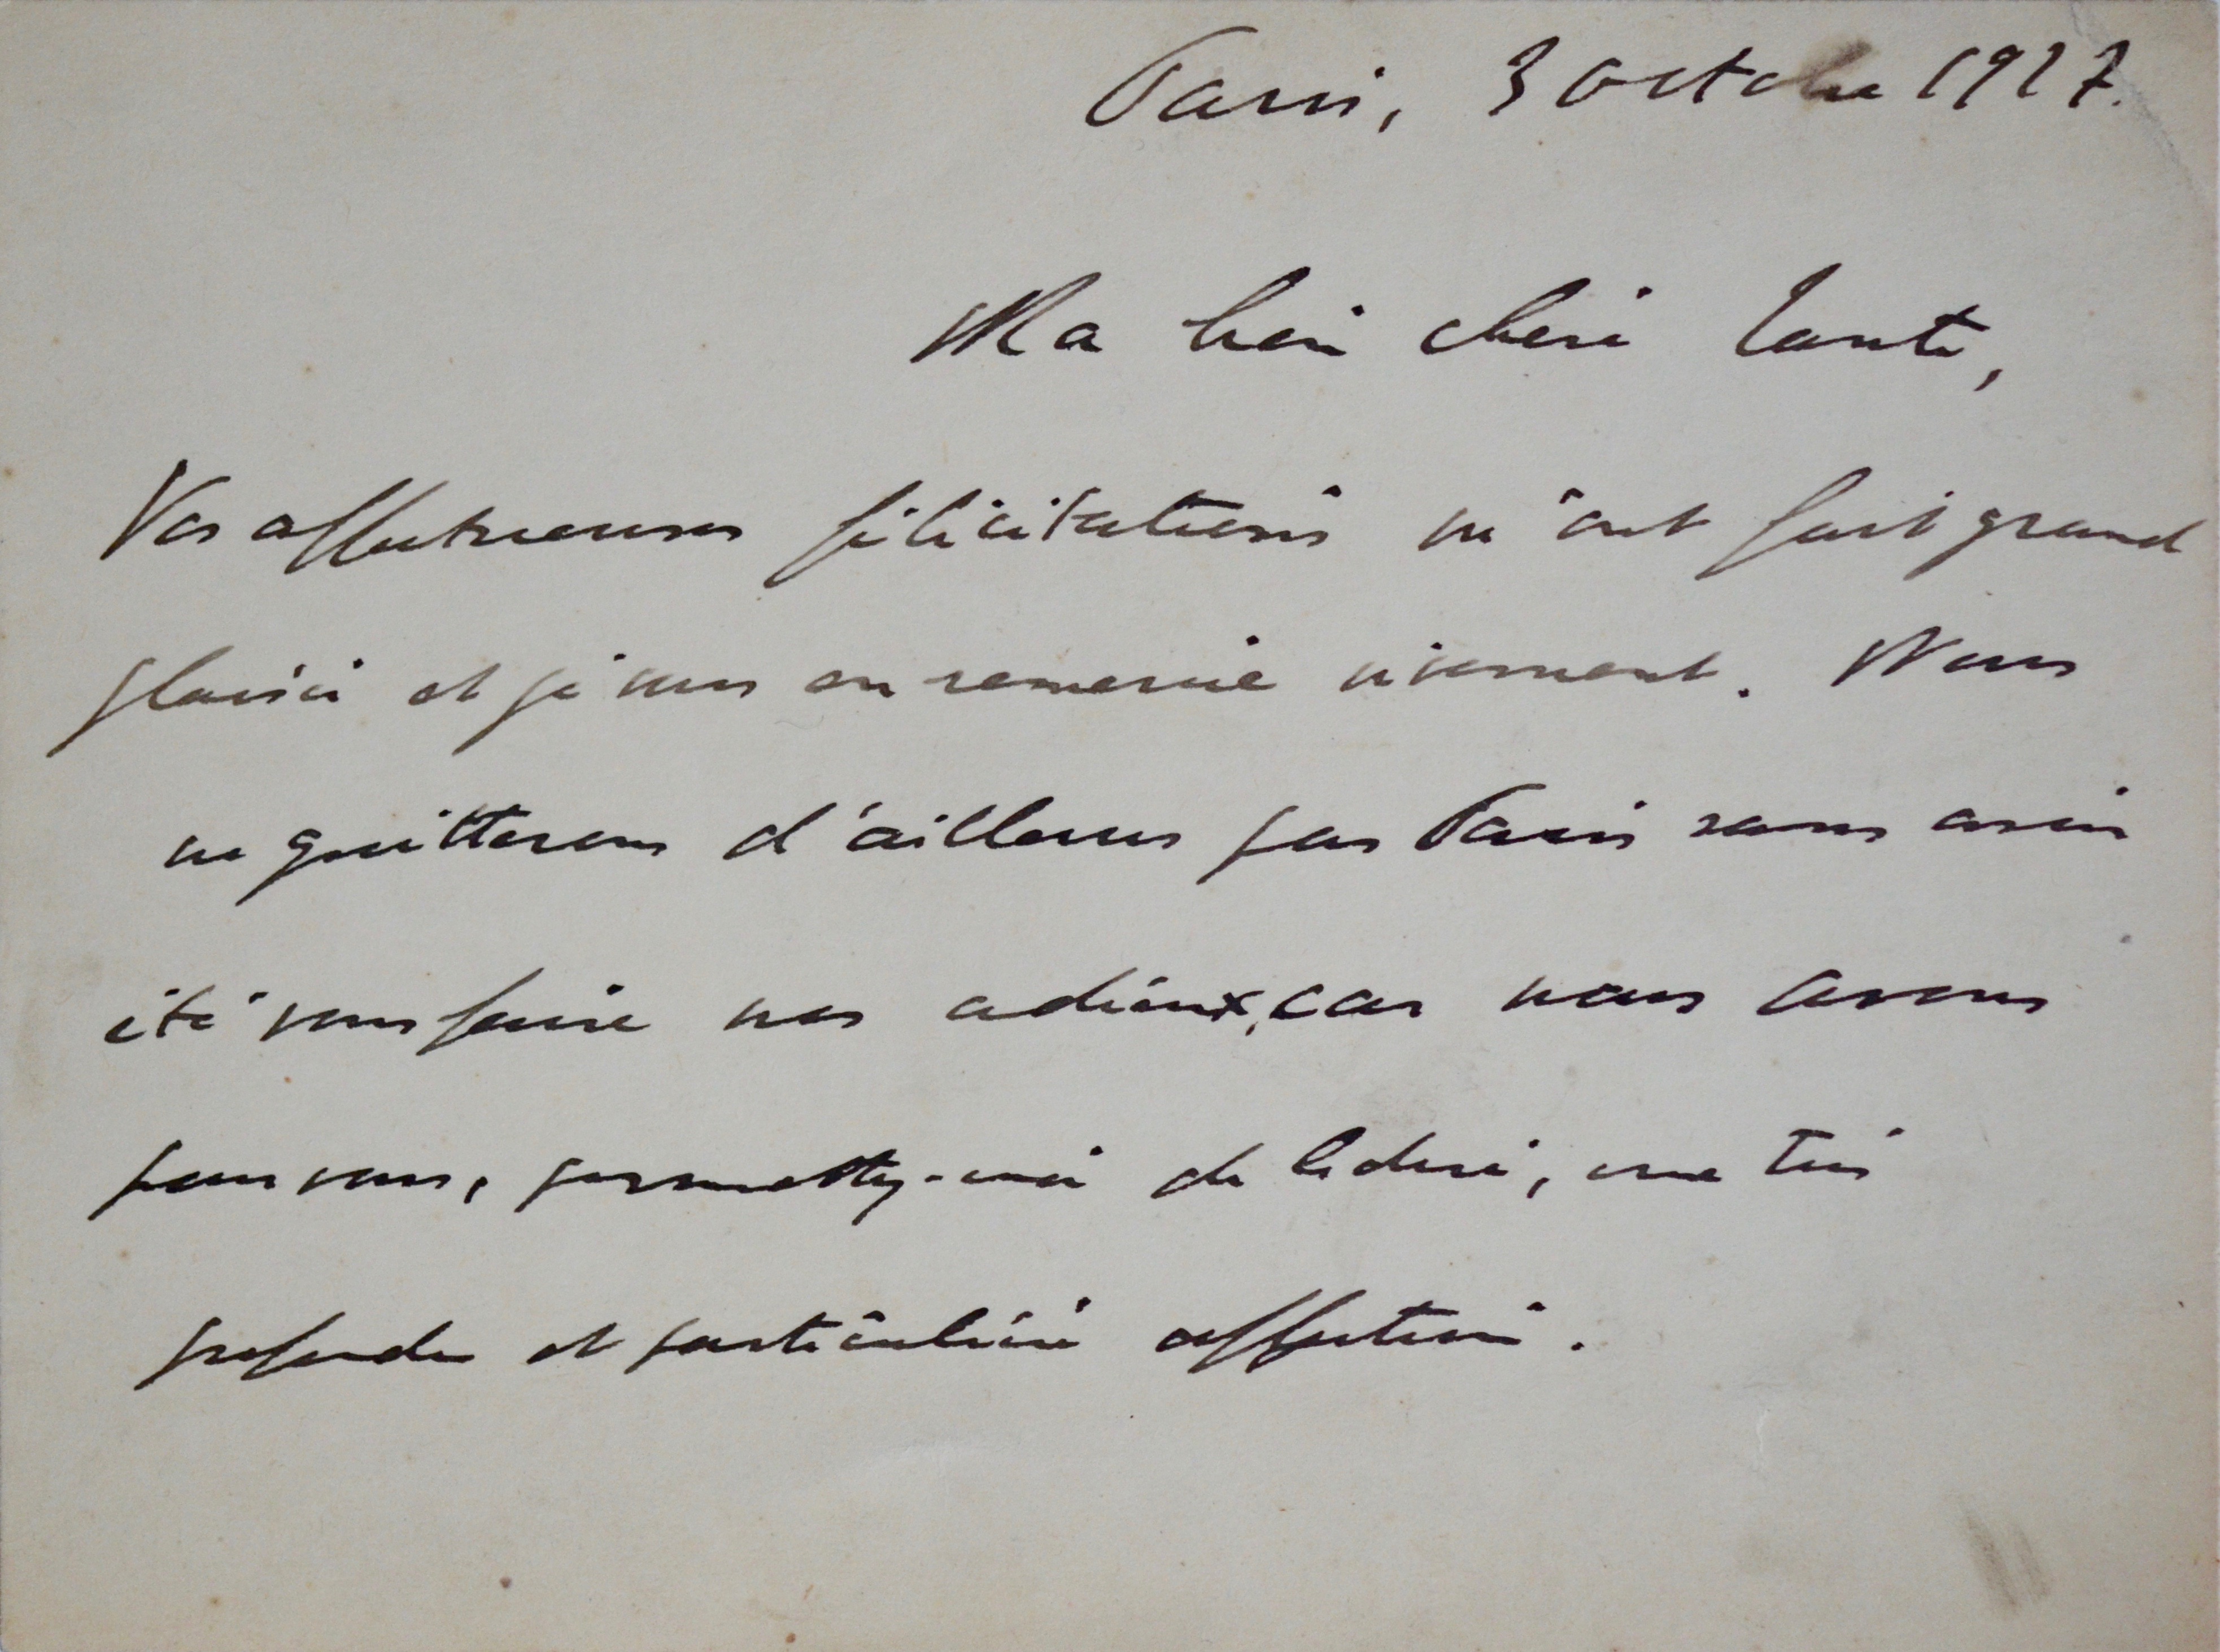 Paris, 3 octobre 1927.
Ma bien chère Tante,
Vos affectueuses félicitations m'ont fait grand
plaisir et je vous en remercie vivement. Nous
ne quitterons d'ailleurs pas Paris sans avoir
été vous faire nos adieux, car nous avons
pour vous, permettez-moi de le dire, une très
profonde et particulière affection.